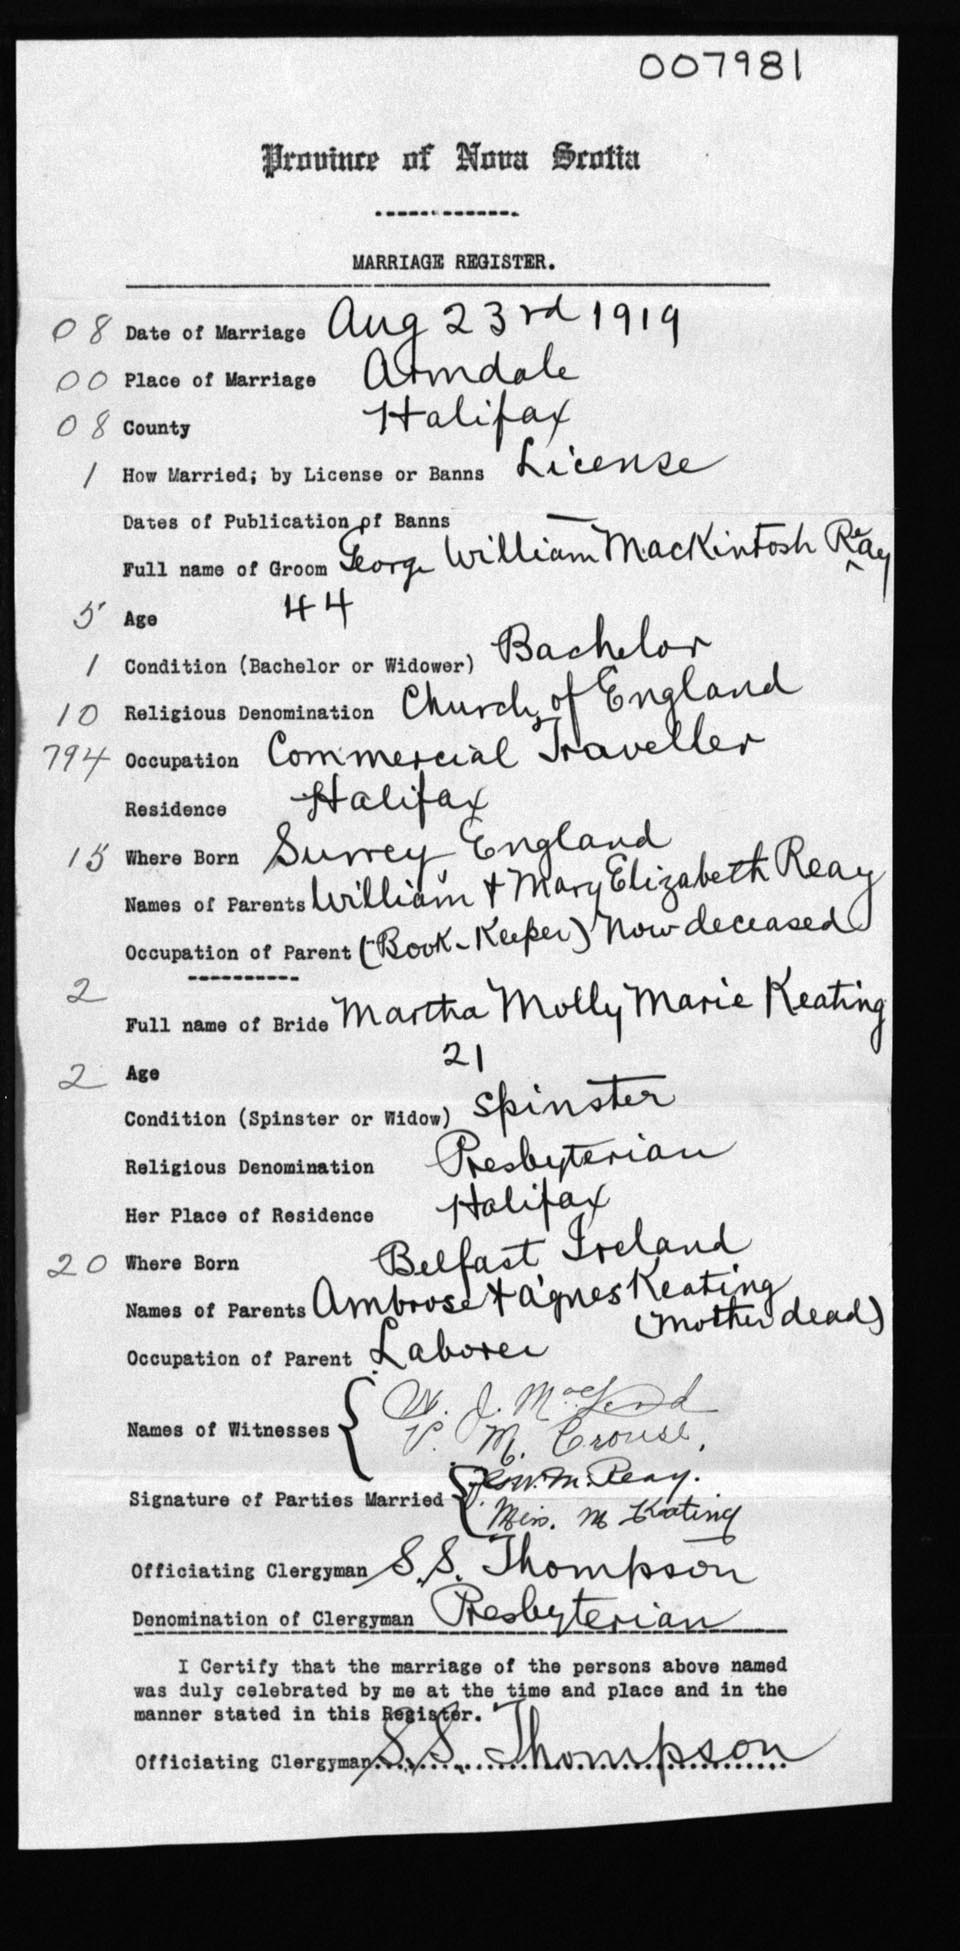 007981
Province of Nova Scotia
MARRIAGE REGISTER.
08 Date of Marriage Aug 23rd 1919
00 Place of Marriage Armdale
08 County Halifax
1 How Married; by License or Banns License
Dates of Publication of Banns —
Full name of Groom George William MacKintosh Reay
5 Age 44
1 Condition (Bachelor or Widower) Bachelor
10 Religious Denomination Church of England
794 Occupation Commercial Traveller
Residence Halifax
15 Where Born Surrey, England
Names of Parents William + Mary Elizabeth Reay
Occupation of Parent (Book-Keeper) Now deceased
2
Full name of Bride Martha Molly Marie Keating
2 Age 21
Condition (Spinster or Widow) Spinster
Religious Denomination Presbyterian
Her Place of Residence Halifax
20 Where Born Belfast Ireland
Names of Parents Ambrose + Agnes Keating
(Mother dead)
Occupation of Parent Laborer
W. J.
Names of Witnesses { V. M. Crouse.
W. M. Reay.
Signature of Parties Married {
Miss. M Keating
Officiating Clergyman S. S. Thompson
Denomination of Clergyman Presbyterian
I Certify that the marriage of the persons above named
was duly celebrated by me at the time and place and in the
manner stated in this Register.
Officiating Clergyman S. S. Thompson